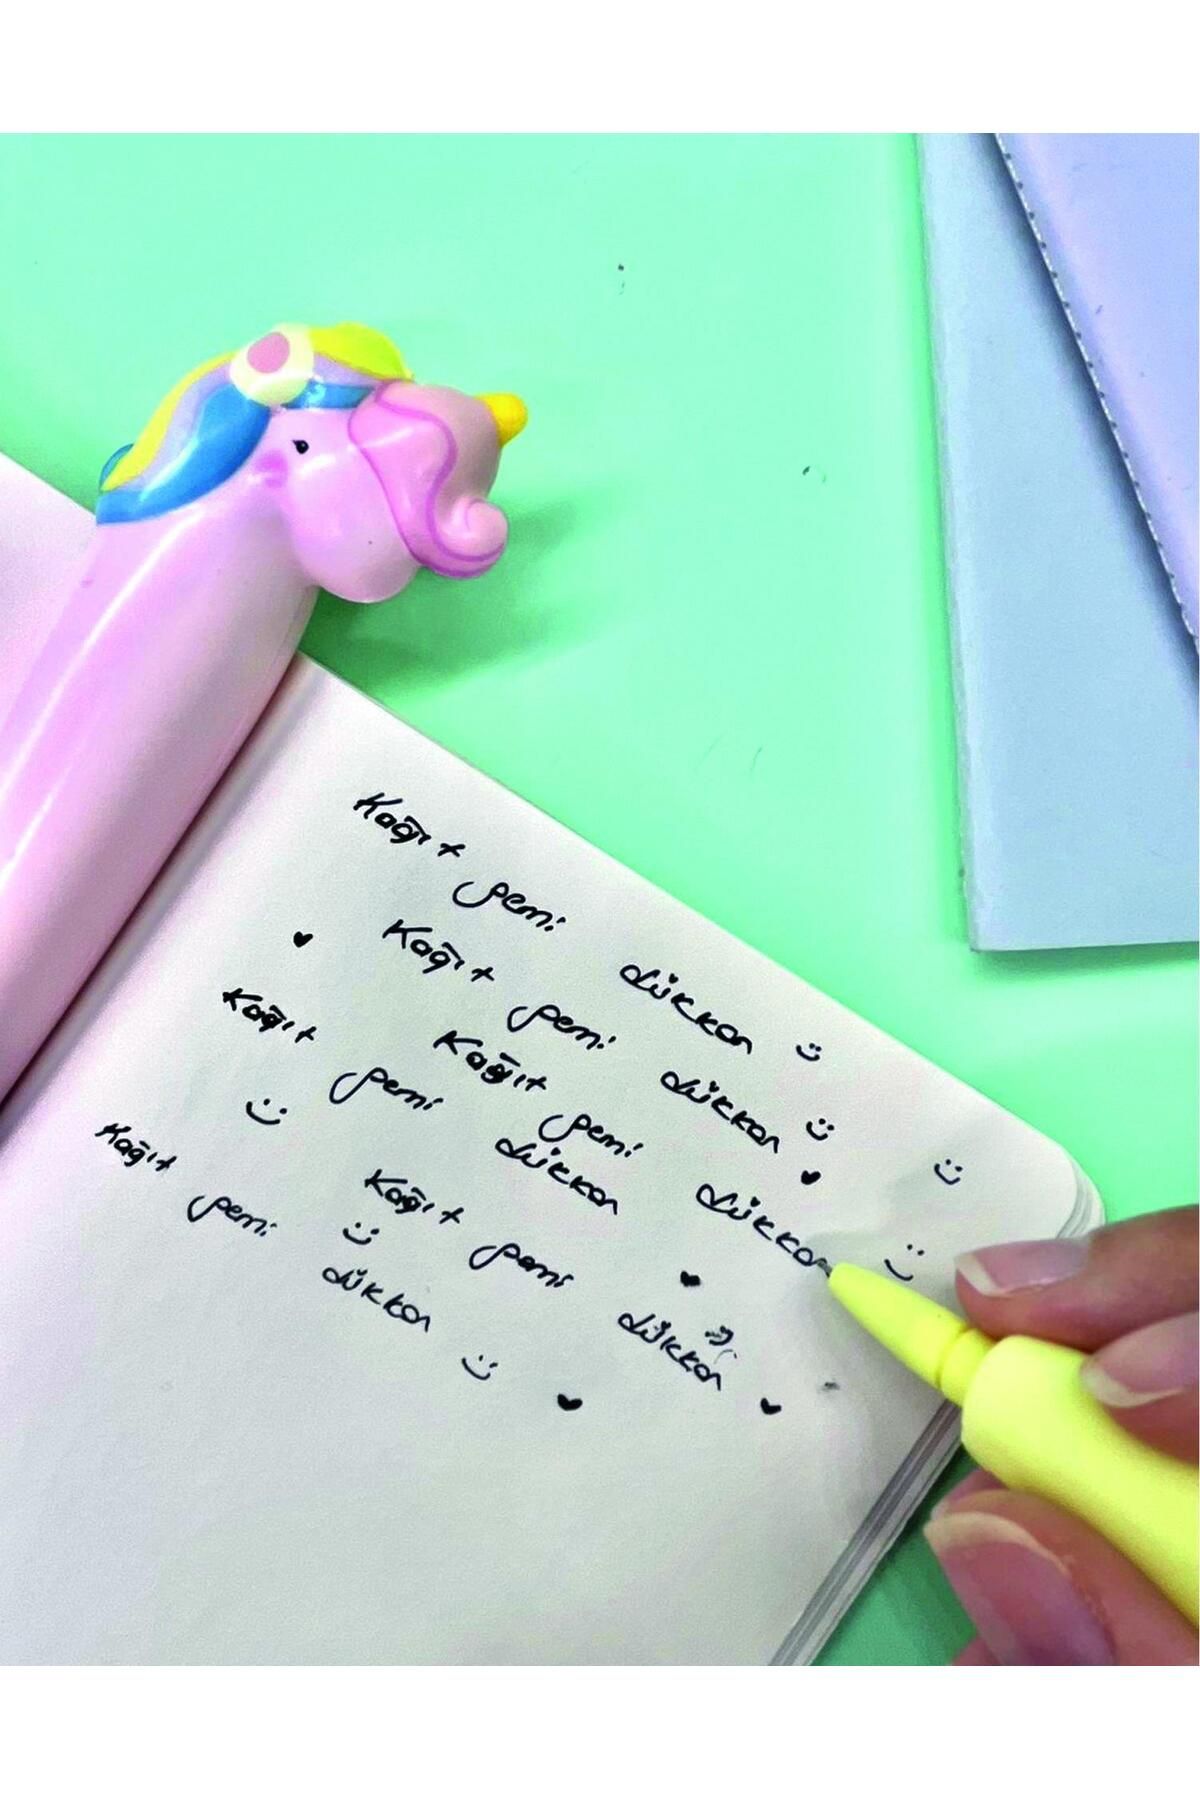 Kağıt gemi dükkan
Kağıt gemi dükkan
Kağıt gemi dükkan
Kağıt gemi dükkan
Kağıt gemi dükkan
Kağıt gemi dükkan